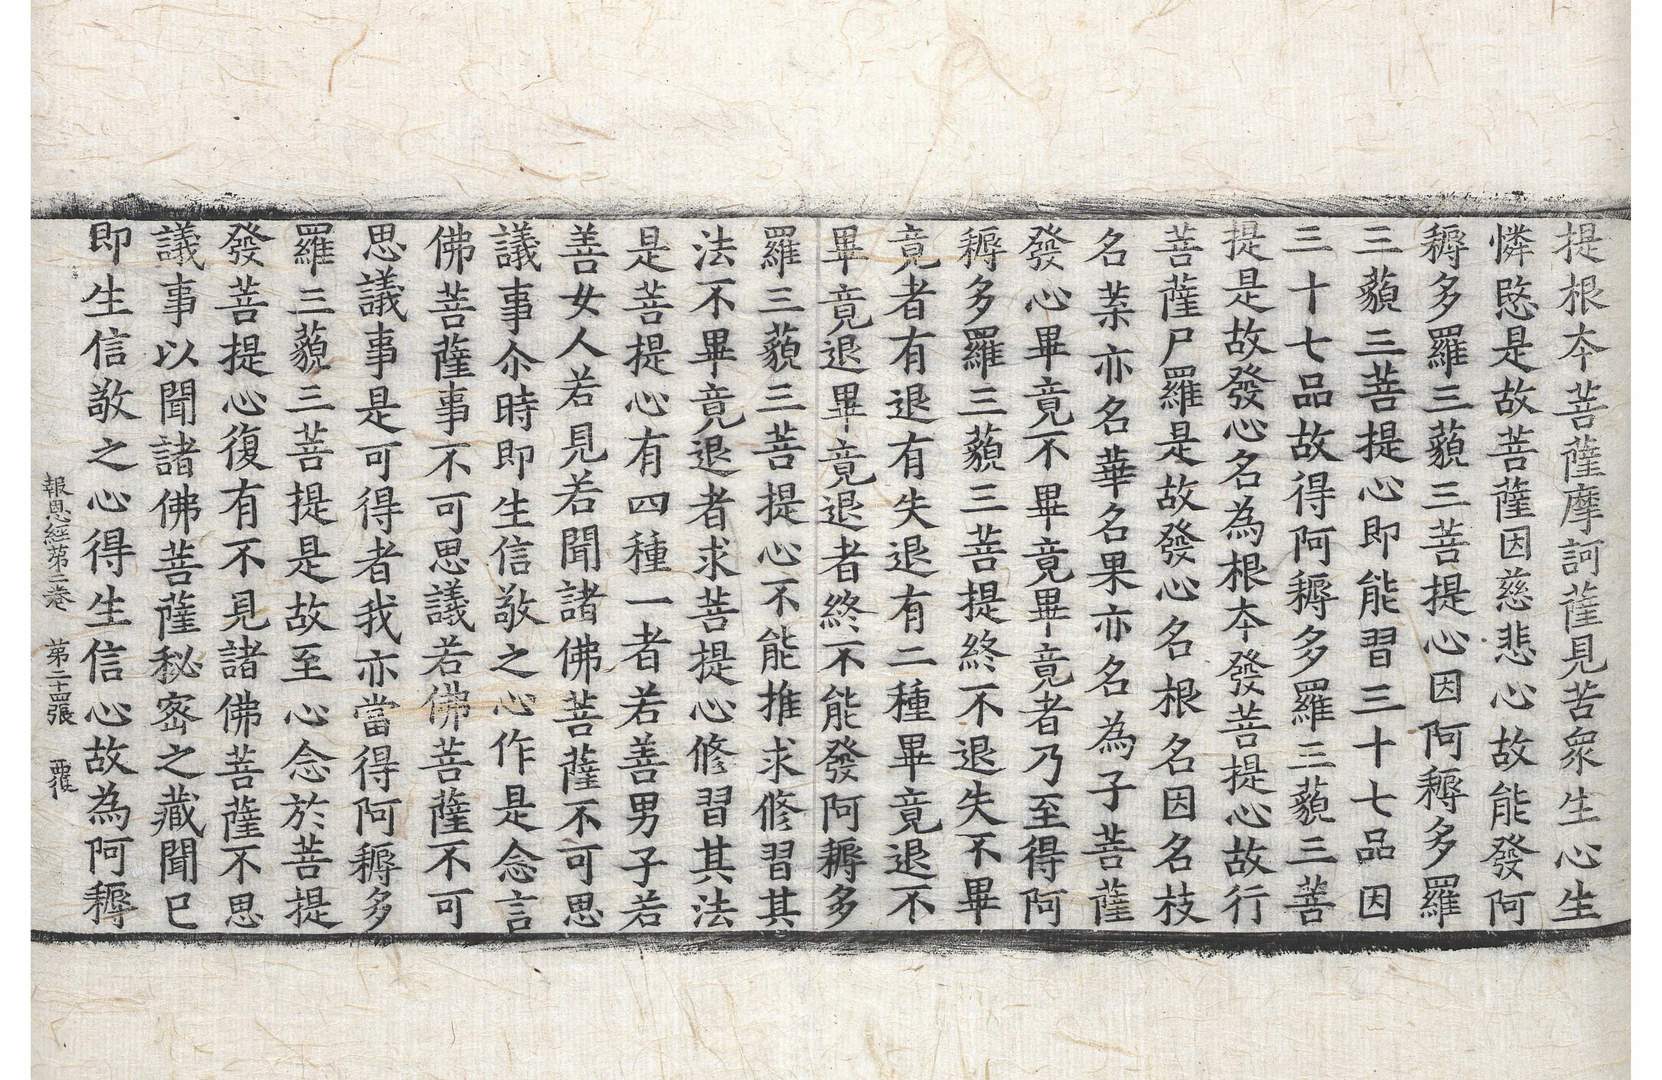 提根夲菩薩摩訶薩見苦衆生心生
憐愍是故菩薩因慈悲心故能發阿
耨多羅三藐三菩提心因阿耨多羅
三藐三菩提心即能習三十七品因
三十七品故得阿耨多羅三藐三菩
提是故發心名為根夲發菩提心故行
菩薩尸羅是故發心名根名因名枝
名葉亦名華名果亦名為子菩薩
發心畢竟不畢竟畢竟者乃至得阿
耨多羅三藐三菩提終不退失不畢
竟者有退有失退有二種畢竟退不
畢竟退畢竟退者終不能發阿耨多
羅三藐三菩提心不能推求修習其
法不畢竟退者求菩提心修習其法
是菩提心有四種一者若善男子若
善女人若見若聞諸佛菩薩不可思
議事尒時即生信敬之心作是念言
佛菩薩事不可思議若佛菩薩不可
思議事是可得者我亦當得阿耨多
羅三藐三菩提是故至心念於菩提
發菩提心復有不見諸佛菩薩不思
議事以聞諸佛菩薩秘密之藏聞已
即生信敬之心得生信心故為阿耨
報恩經第二卷 第二十四張